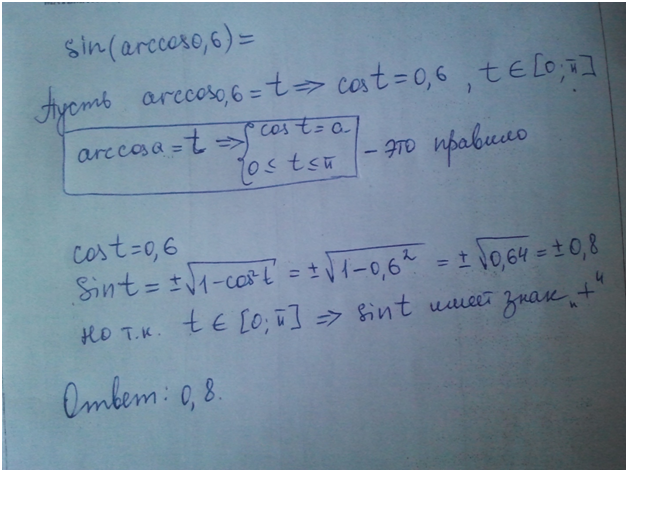 sin(arccos0,6)=
Пусть arccos0,6=t⇒ cost=0,6, t∈[0;π]
arccosa=t ⇒{cost=a
0≤t≤π
- это правило
cost=0,6
Sint=±√1-cos²t = ±√1-0,6² = ±√0,64 = ±0,8
но т.к. t∈[0;π] ⇒ sint имеет знак „+“
Ответ: 0,8.